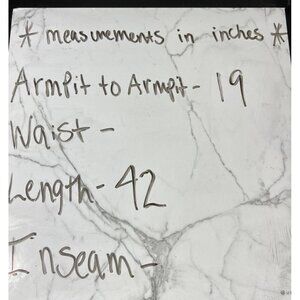 * measurements in inches *
Armpit to Armpit - 19
Waist -
Length - 42
Inseam -